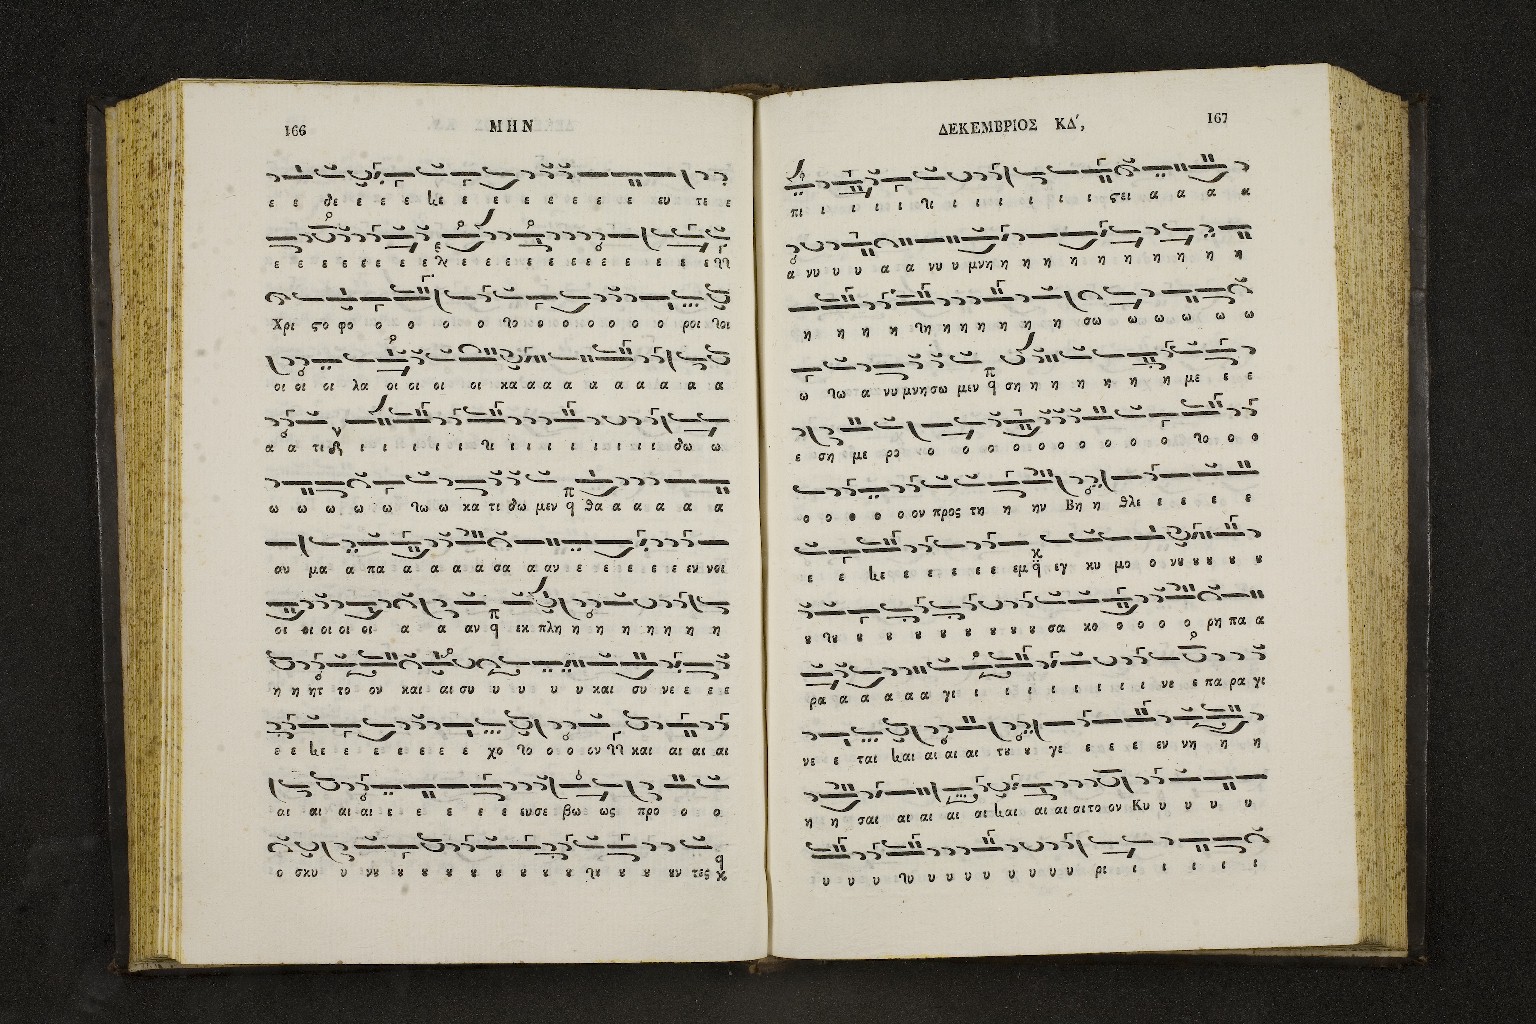 166
ΜΗΝ
ε ε δε ε ε ε ε ε ε ε ε ε ε ε ευ τε ε
ε ε ε ε ε ε ε ε ε ε ε ε ε ε ε ε ε ε
Χρι ϛο φο ο ο ο ο ο ο ο ο ο ο ο ροι
οι οι οι λα οι οι οι οι κα α α α α α α α α α
α α τι ι ι ι ι ι ι ι ι ι ι ι ι δω ω
ω ω ω ω ω ω κα τι δω μεν θα α α α α α
αν μα α πα α α α α σα α αν ε ε ε ε ε εν νοι
οι οι οι οι οι α α αν εκ πλη η η η η η η η
η η ητ το ον και αι συ υ υ υ υ και συ νε ε ε ε
ε ε ε ε ε ε ε ε χο ο ο ο ον και αι αι αι
αι αι αι αι ε ε ε ε ε ε ευσε βω ως προ ο ο
ο σκυ υ νȣ ȣ ȣ ȣ ȣ ȣ ȣ ȣ ȣ ȣ ȣ ȣν τες
ΔΕΚΕΜΒΡΙΟΣ ΚΔ΄,
167
πι ι ι ι ι ι ι ι ι ι ι ϛει α α α α
α νυ υ υ α α νυ υ μνη η η η η η η η η η η
η η η η η η η η η η σω ω ω ω ω ω
ω ω α νυ μνη σω μεν ση η η η η η η με ε ε
ε ση με ρο ο ο ο ο ο ο ο ο ο ο ο ο
ο ο ο ο ο ον προς τη η ην Βη η θλε ε ε ε ε
ε ε ε ε ε ε ε ε εμ εγ κυ μο ο νȣ ȣ ȣ ȣ ȣ
ȣ ȣ ȣ ȣ ȣ ȣ ȣ ȣ ȣ ȣ σα κο ο ο ο ο ρη πα α
ρα α α α α α γι ι ι ι ι ι ι ι ι νε ε πα ρα γι
νε ε ται αι αι αι αι τȣ ȣ γε ε ε ε ε εν νη η η
η η σαι αι αι αι αι αι αι αι αι το ον Κυ υ υ υ υ
υ υ υ υ υ υ υ υ υ υ ρι ι ι ι ι ι